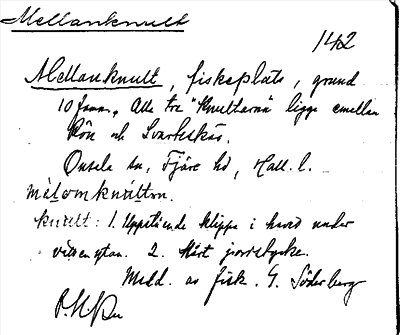 Mellanknult
142
Mellanknult, fiskeplats, grund
10 famn. Alla tre "Knultarna" ligga emellan
Rön och Svarteskär.
Onsala sn, Fjäre hd, Hall. l.
knult: 1. Uppstående klippa i havet under
vattenytan. 2. Hårt jordstycke.
Medd. av fisk. G. Söderberg